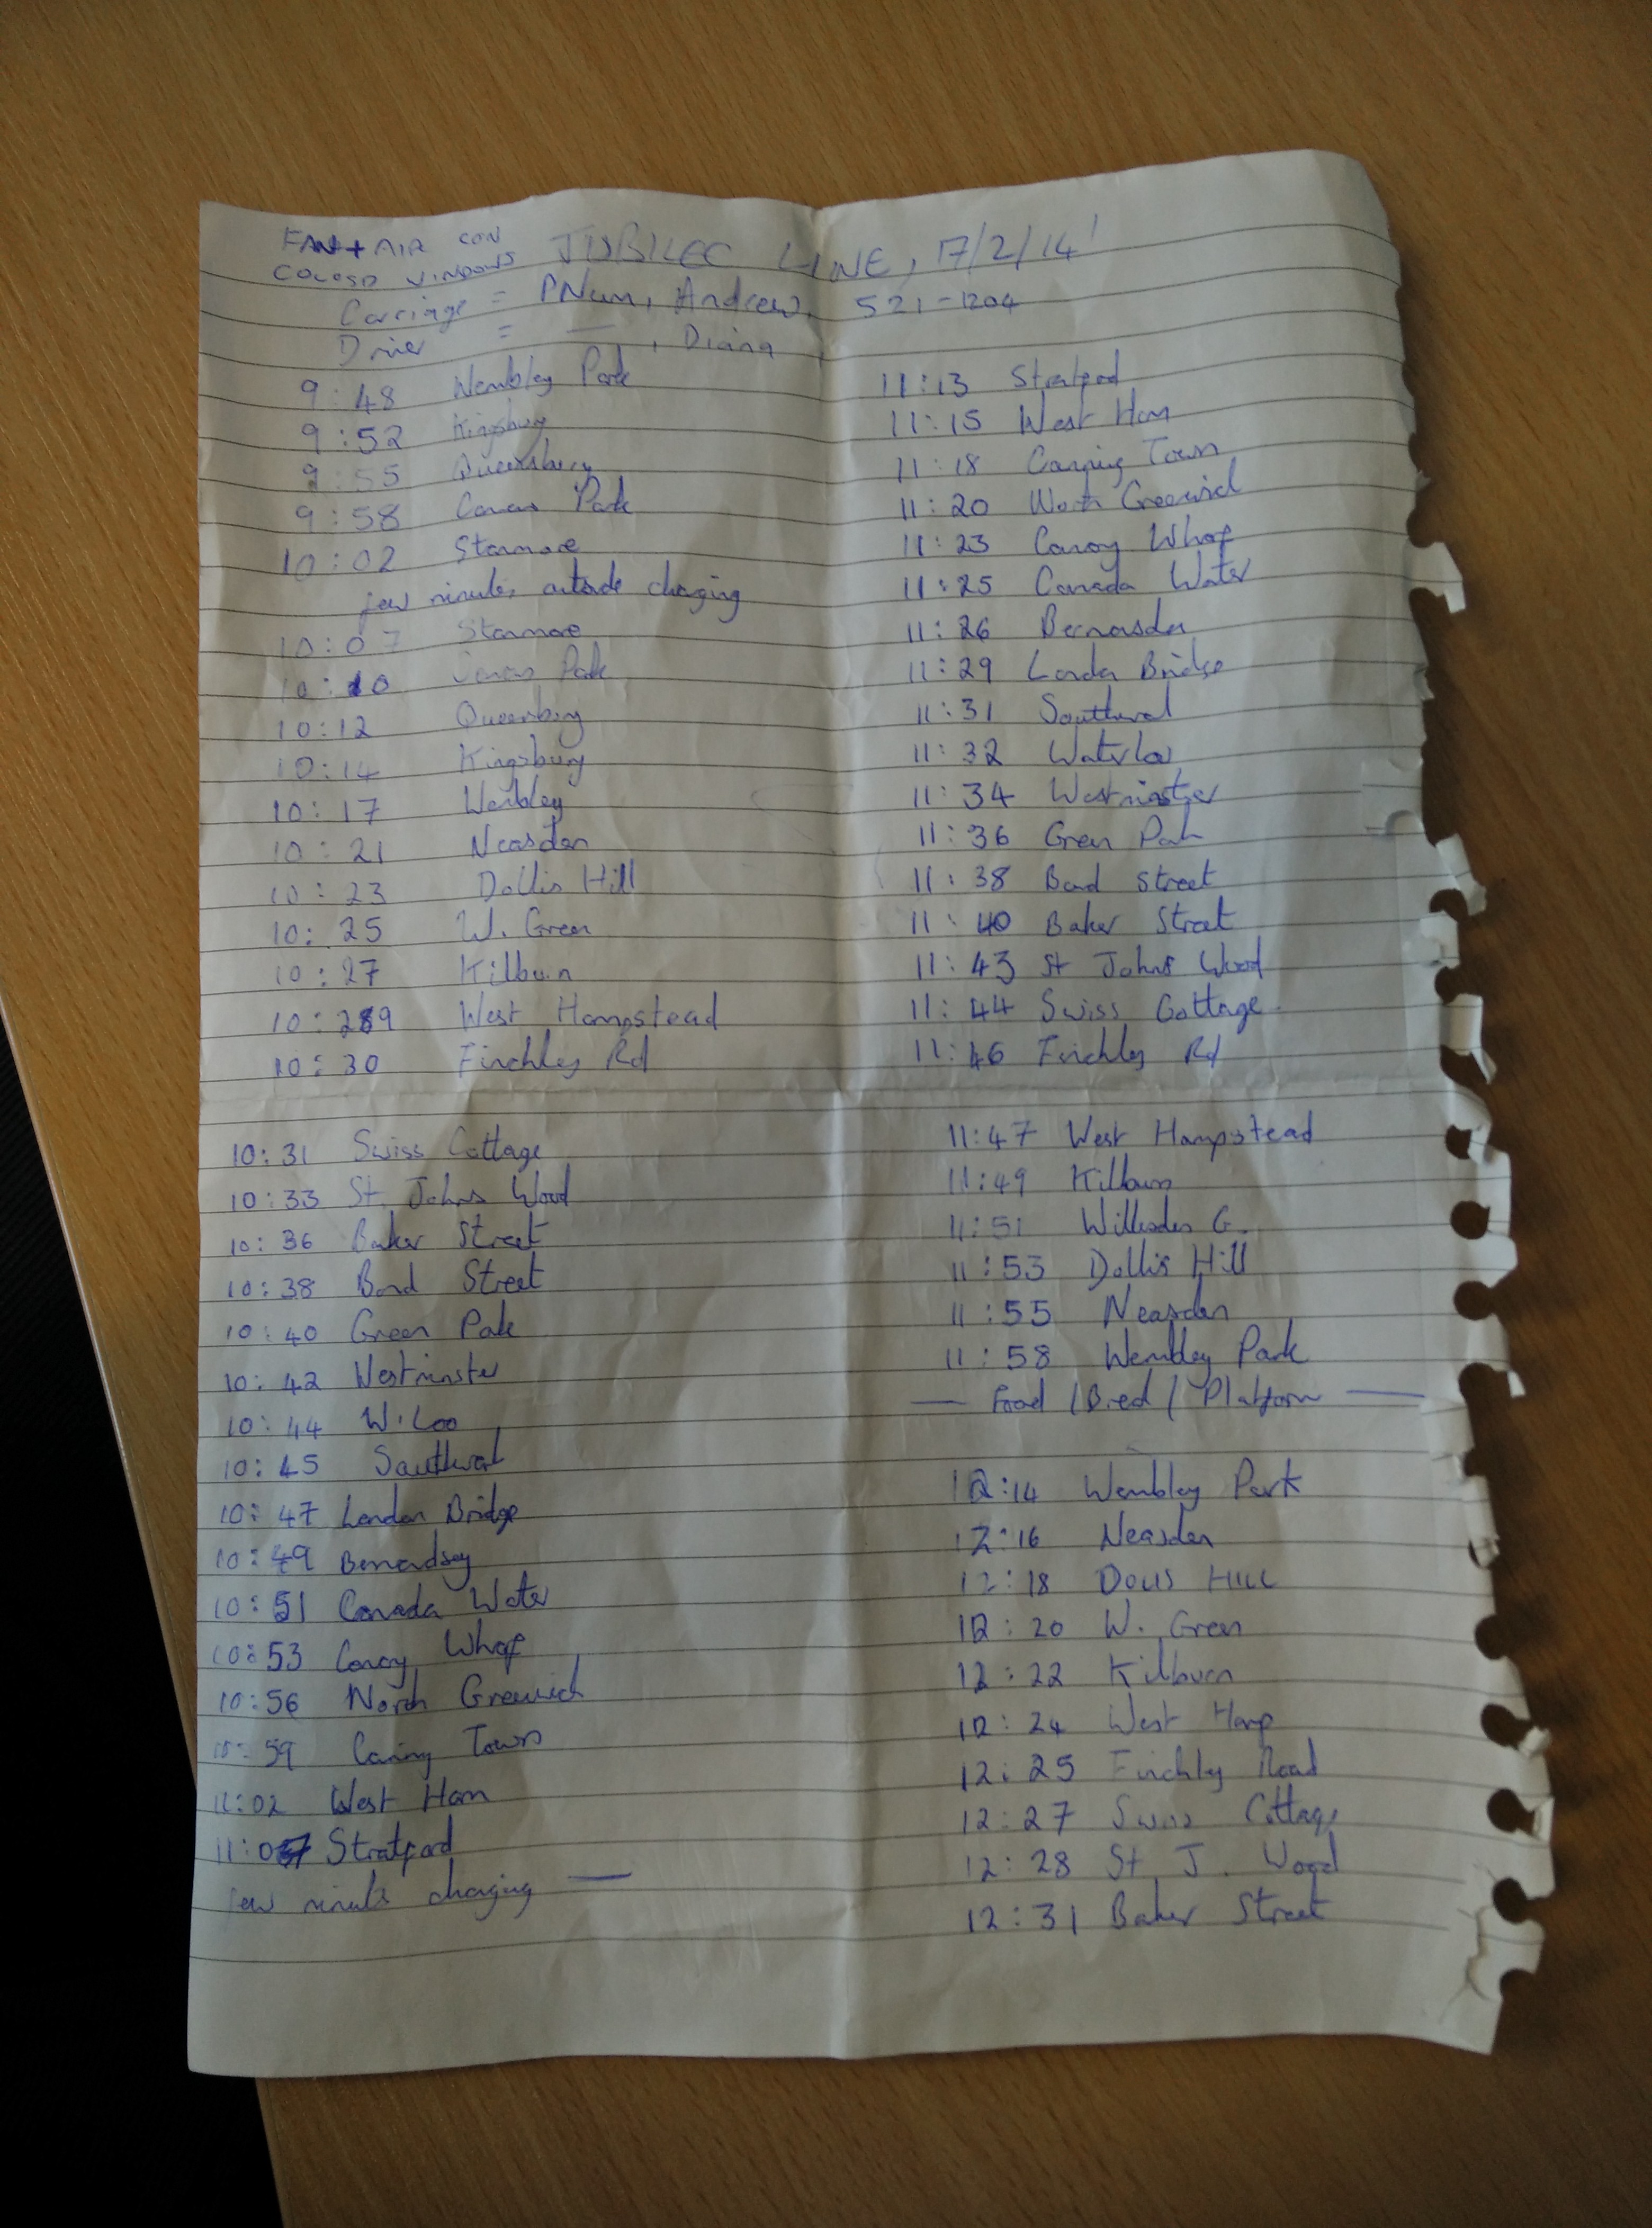 FAN + AIR CON
COLOSD WINDOWS
JUBILEE LINE, 17/2/14
Carriage = PNum, Andrew, 521-1204
Driver = — , Diana
9:48 Wembley Park
9:52 Kingsbury
9:55 Queensbury
9:58 Canons Park
10:02 Stanmore
few minutes outside charging
10:07 Stanmore
10:10 Canons Park
10:12 Queensbury
10:14 Kingsbury
10:17 Wembley
10:21 Neasden
10:23 Dollis Hill
10:25 W. Green
10:27 Kilburn
10:29 West Hampstead
10:30 Finchley Rd
10:31 Swiss Cottage
10:33 St. Johns Wood
10:36 Baker Street
10:38 Bond Street
10:40 Green Park
10:42 Westminster
10:44 W.Loo
10:45 Southwark
10:47 London Bridge
10:49 Bermondsey
10:51 Canada Water
10:53 Canary Wharf
10:56 North Greenwich
10:59 Caning Town
11:02 West Ham
11:07 Stratford
few minuts charging —
11:13 Stratford
11:15 West Ham
11:18 Canning Town
11:20 North Greenwich
11:23 Canary Wharf
11:25 Canada Water
11:26 Bermondsey
11:29 London Bridge
11:31 Southwark
11:32 Waterloo
11:34 Westminster
11:36 Green Park
11:38 Bond Street
11:40 Baker Street
11:43 St Johns Wood
11:44 Swiss Cottage
11:46 Finchley Rd
11:47 West Hampstead
11:49 Kilburn
11:51 Willesden G.
11:53 Dollis Hill
11:55 Neasden
11:58 Wembley Park
— Food / Bred / Platform —
12:14 Wembley Park
12:16 Neasden
12:18 DOLLIS HILL
12:20 W. Green
12:22 Kilburn
12:24 West Hamp
12:25 Finchley Road
12:27 Swiss Cottage
12:28 St J. Wood
12:31 Baker Street